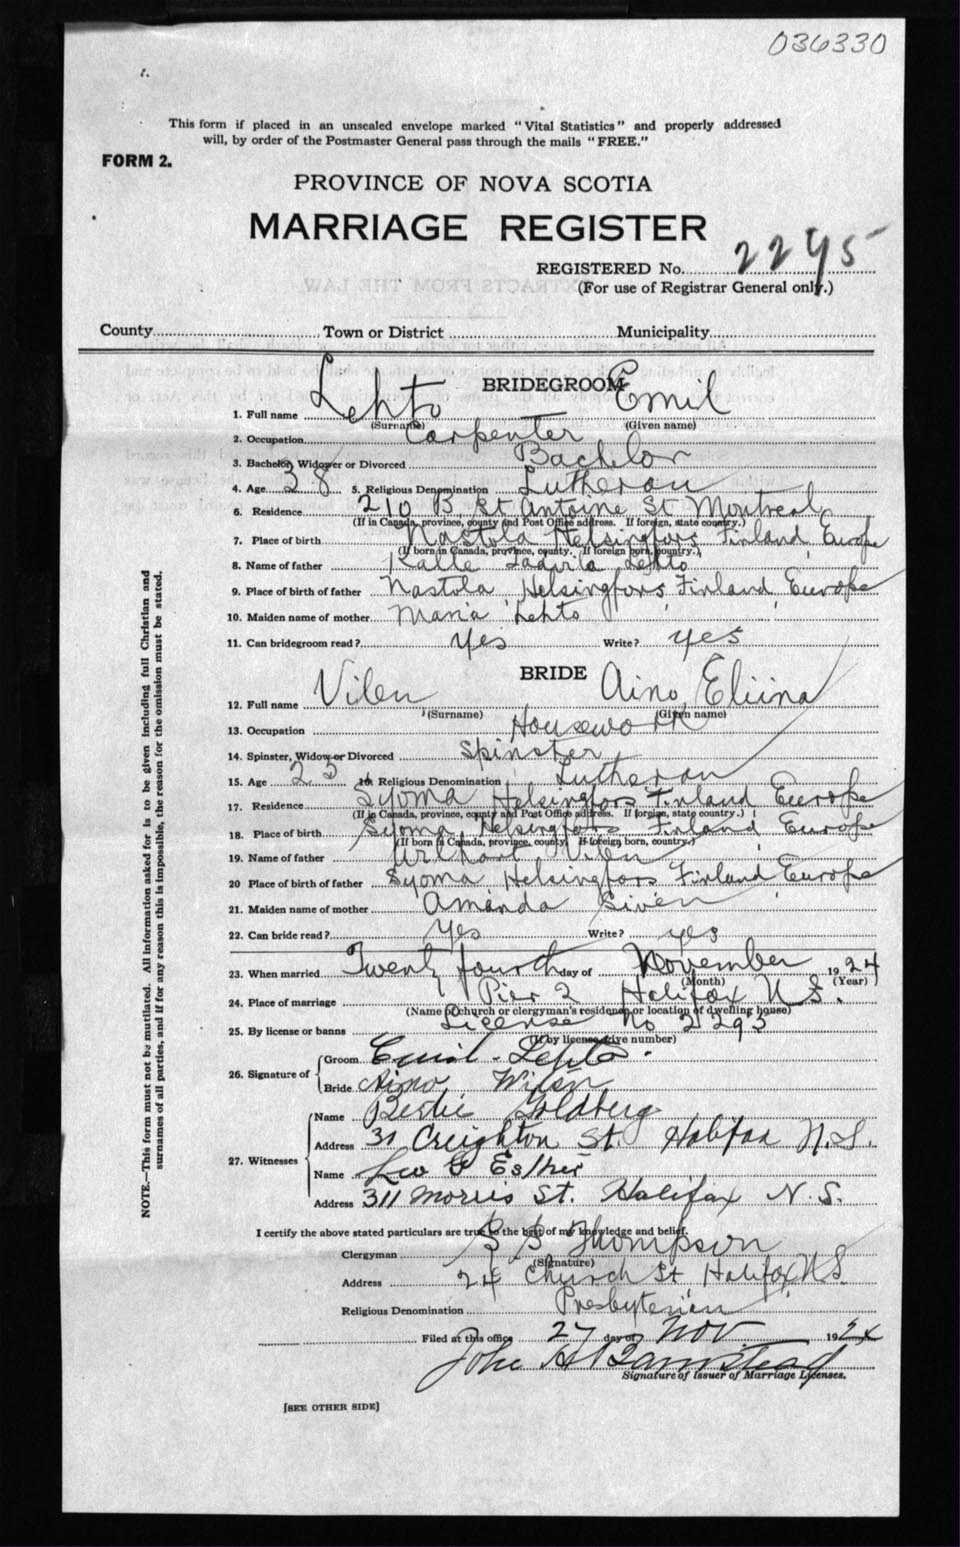 036330
This form if placed in an unsealed envelope marked "Vital Statistics" and properly addressed
will, by order of the Postmaster General pass through the mails "FREE."
FORM 2.
PROVINCE OF NOVA SCOTIA
MARRIAGE REGISTER
REGISTERED No. 2295
(For use of Registrar General only.)
County Town or District Municipality
BRIDEGROOM
1. Full name Lehto Emil
(Surname) (Given name)
2. Occupation Carpenter
3. Bachelor, Widower or Divorced Bachelor
4. Age 38 5. Religious Denomination Lutheran
6. Residence 210 B St Antoine St Montreal
(If in Canada, province, county and Post Office address. If foreign, state country.)
7. Place of birth Nastola Helsingfors Finland Europe
(If born in Canada, province, county. If foreign born, country.)
8. Name of father Kalle Lehto
9. Place of birth of father Nastola Helsingfors Finland Europe
10. Maiden name of mother Maria Lehto
11. Can bridegroom read? Yes Write? yes
BRIDE
12. Full name Vilen Aino Eliina
(Surname) (Given name)
13. Occupation Housework
14. Spinster, Widow or Divorced Spinster
15. Age 23 16. Religious Denomination Lutheran
17. Residence Syoma Helsingfors Finland Europe
(If in Canada, province, county and Post Office address. If foreign, state country.)
18. Place of birth Syoma Helsingfors Finland Europe
(If born in Canada, province, county. If foreign born, country.)
19. Name of father Vilen
20 Place of birth of father Syoma Helsingfors Finland Europe
21. Maiden name of mother Amanda Siven
22. Can bride read? Yes Write? yes
23. When married Twenty fourth day of November 1924
(Month) (Year)
24. Place of marriage Pier 2 Halifax N.S.
(Name of church or clergyman's residence or location of dwelling house)
25. By license or banns License No 2293
(If by license, give number)
26. Signature of Groom Emil Lehto.
Bride Aino Wilen
27. Witnesses Name Bertie Goldberg
Address 31 Creighton St. Halifax N.S.
Name Leo F Esther
Address 311 Morris St. Halifax N.S.
I certify the above stated particulars are true to the best of my knowledge and belief.
Clergyman S S Thompson
(Signature)
Address 24 Church St Halifax NS
Religious Denomination Presbyterian
Filed at this office 27 day of Nov 1924
John H Barnstead
Signature of Issuer of Marriage Licenses.
[SEE OTHER SIDE]
NOTE.—This form must not be mutilated. All information asked for is to be given including full Christian and
surnames of all parties, and if for any reason this is impossible, the reason for the omission must be stated.